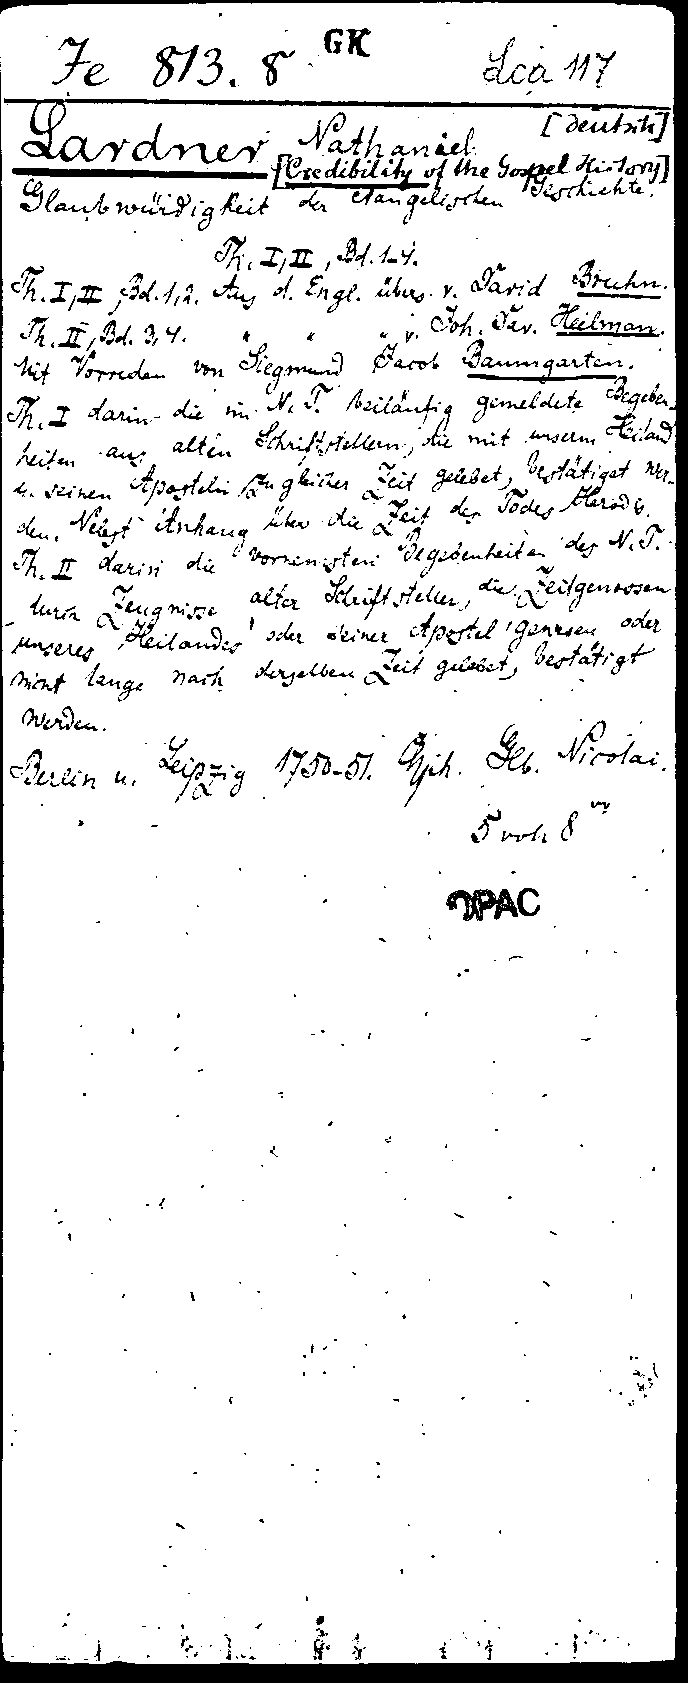 GK
Fe 813. 8 Lca 117
Lardner, Nathaniel [deutsch]
[Credibility of the Gospel History]
Glaubwürdigkeit der evangelischen Geschichte.
Th. I, II, Bd. 1-4.
Th. I, II, Bd. 1, 2. Aus d. Engl. übers. v. David Bruhn.
Th. II, Bd. 3, 4. " " " v. Joh. Dav. Heilman.
Mit Vorreden von Siegmund Jacob Baumgarten.
Th. I darin die im N. T. beiläufig gemeldete Begeben-
heiten aus alten Schriftstellern, die mit unserm Heiland
u. seinen Aposteln zu gleicher Zeit gelebet, bestätiget wer-
den. Nebst Anhang über die Zeit des Todes Herodis.
Th. II darin die vornemsten Begebenheiten des N. T.
durch Zeugnisse alter Schriftsteller, die Zeitgenossen
unseres Heilandes oder seiner Apostel gewesen oder
nicht lange nach derselben Zeit gelebet, bestätigt
werden.
Berlin u. Leipzig 1750-51. Chph. Glb. Nicolai.
5 voll 8
OPAC